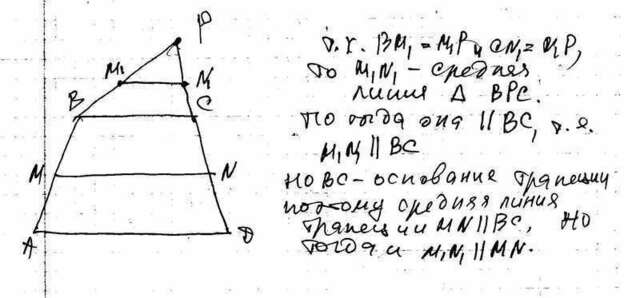 P
M₁ N₁
B C
M N
A D
т.к. BM₁ = M₁P и CN₁ = N₁P,
то M₁N₁ – средняя
линия Δ BPC.
Но тогда она || BC, т.е.
M₁N₁ || BC
Но BC – основание трапеции
поэтому средняя линия
трапеции MN || BC, но
тогда и M₁N₁ || MN.